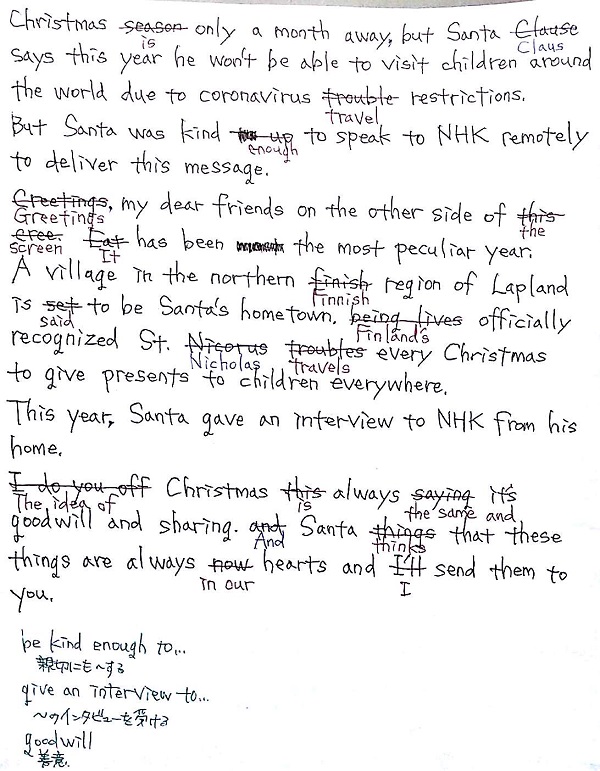 Christmas season only a month away, but Santa Clause
is Claus
says this year he won't be able to visit children around
the world due to coronavirus trouble restrictions.
travel
But Santa was kind up to speak to NHK remotely
enough
to deliver this message.
Greetings, my dear friends on the other side of this
Greetings the
cree. Eat has been the most peculiar year.
screen It
A village in the northern finish region of Lapland
Finnish
is set to be Santa's hometown. being lives officially
said Finland's
recognized St. Nicorus troubles every Christmas
Nicholas travels
to give presents to children everywhere.
This year, Santa gave an interview to NHK from his
home.
I do you off Christmas this always saying it's
The idea of is the same and
goodwill and sharing. and Santa things that these
And thinks
things are always now hearts and I'll send them to
in our I
you.
be kind enough to...
親切にも~する
give an interview to...
~のインタビューを受ける
goodwill
善意.